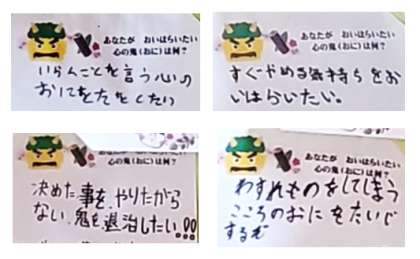 あなたが おいはらいたい
心の鬼(おに)は何？
いらんことを言う心の
おにをたをしたい
あなたが おいはらいたい
心の鬼(おに)は何？
すぐやめる気持ちをお
いはらいたい。
あなたが おいはらいたい
心の鬼(おに)は何？
決めた事を、やりたがら
ない、鬼を退治したい!!!
あなたが おいはらいたい
心の鬼(おに)は何？
わすれものをしてしまう
こころのおにをたいじ
するぞ